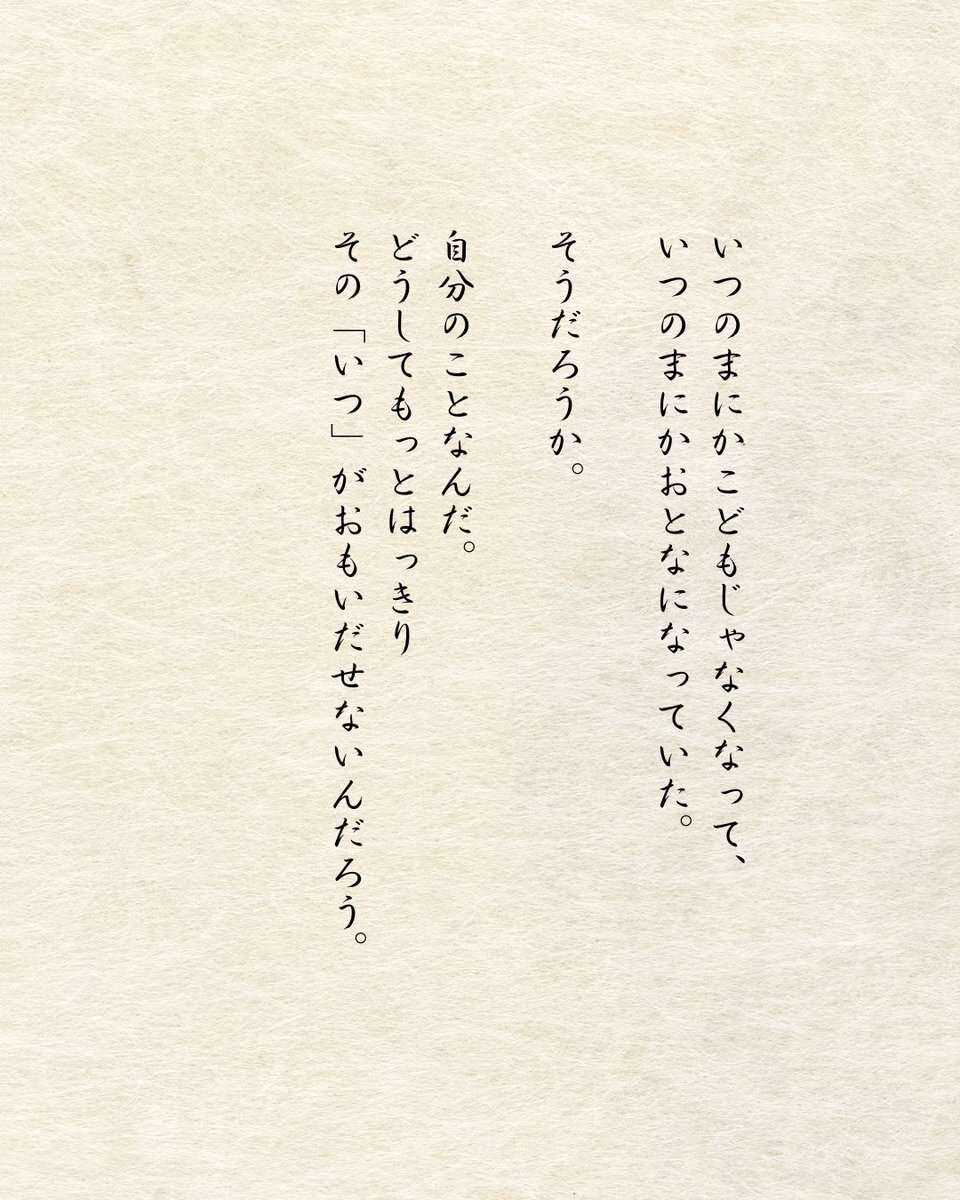 いつのまにかこどもじゃなくなって、
いつのまにかおとなになっていた。
そうだろうか。
自分のことなんだ。
どうしてもっとはっきり
その「いつ」がおもいだせないんだろう。